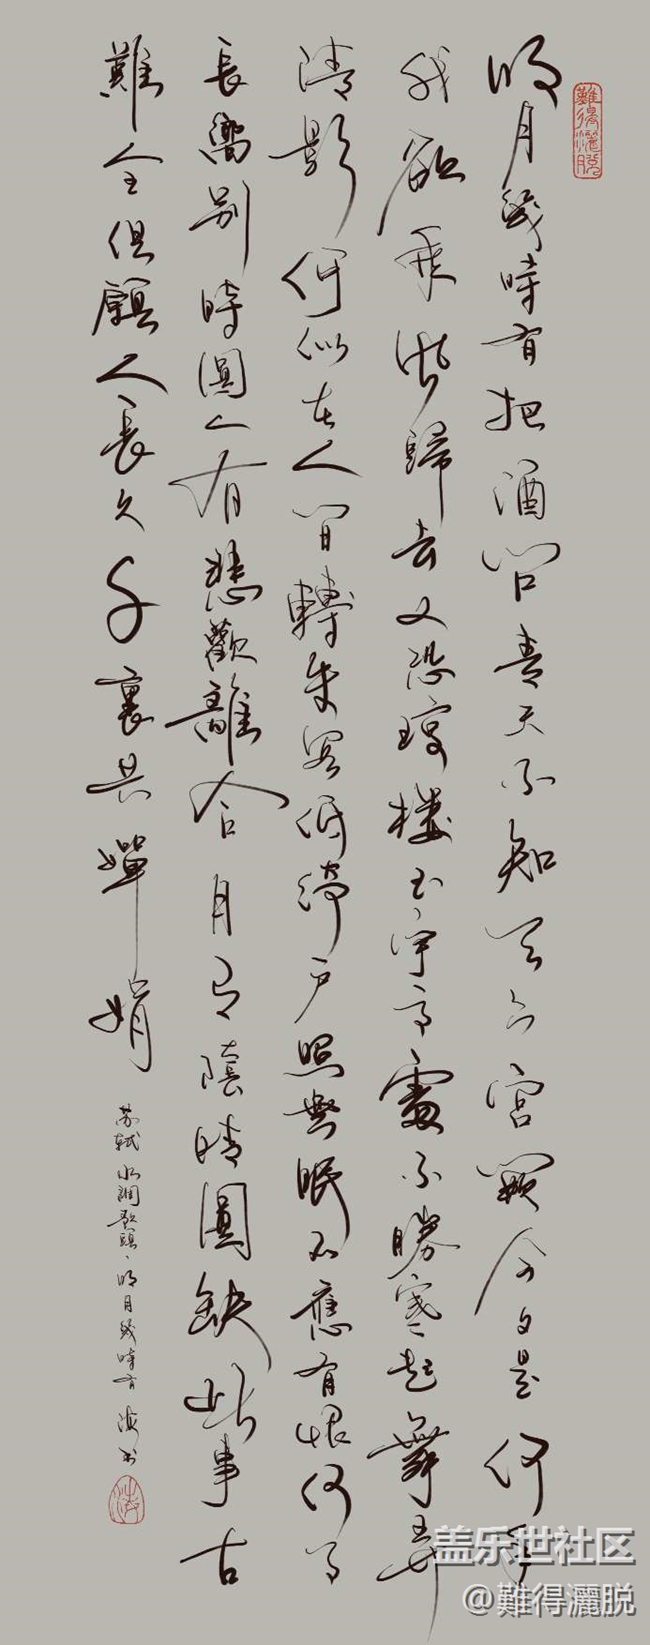 難得灑脫
明月幾時有把酒問青天不知天上宮闕今夕是何年
我欲乘風歸去又恐瓊樓玉宇高處不勝寒起舞弄
清影何似在人間轉朱閣低綺戶照無眠不應有恨何事
長嚮别時圓人有悲歡離合月有陰晴圓缺此事古
難全但願人長久千裏共嬋娟
苏軾水調歌頭、明月幾時有 海书
盖乐世社区
@難得灑脱